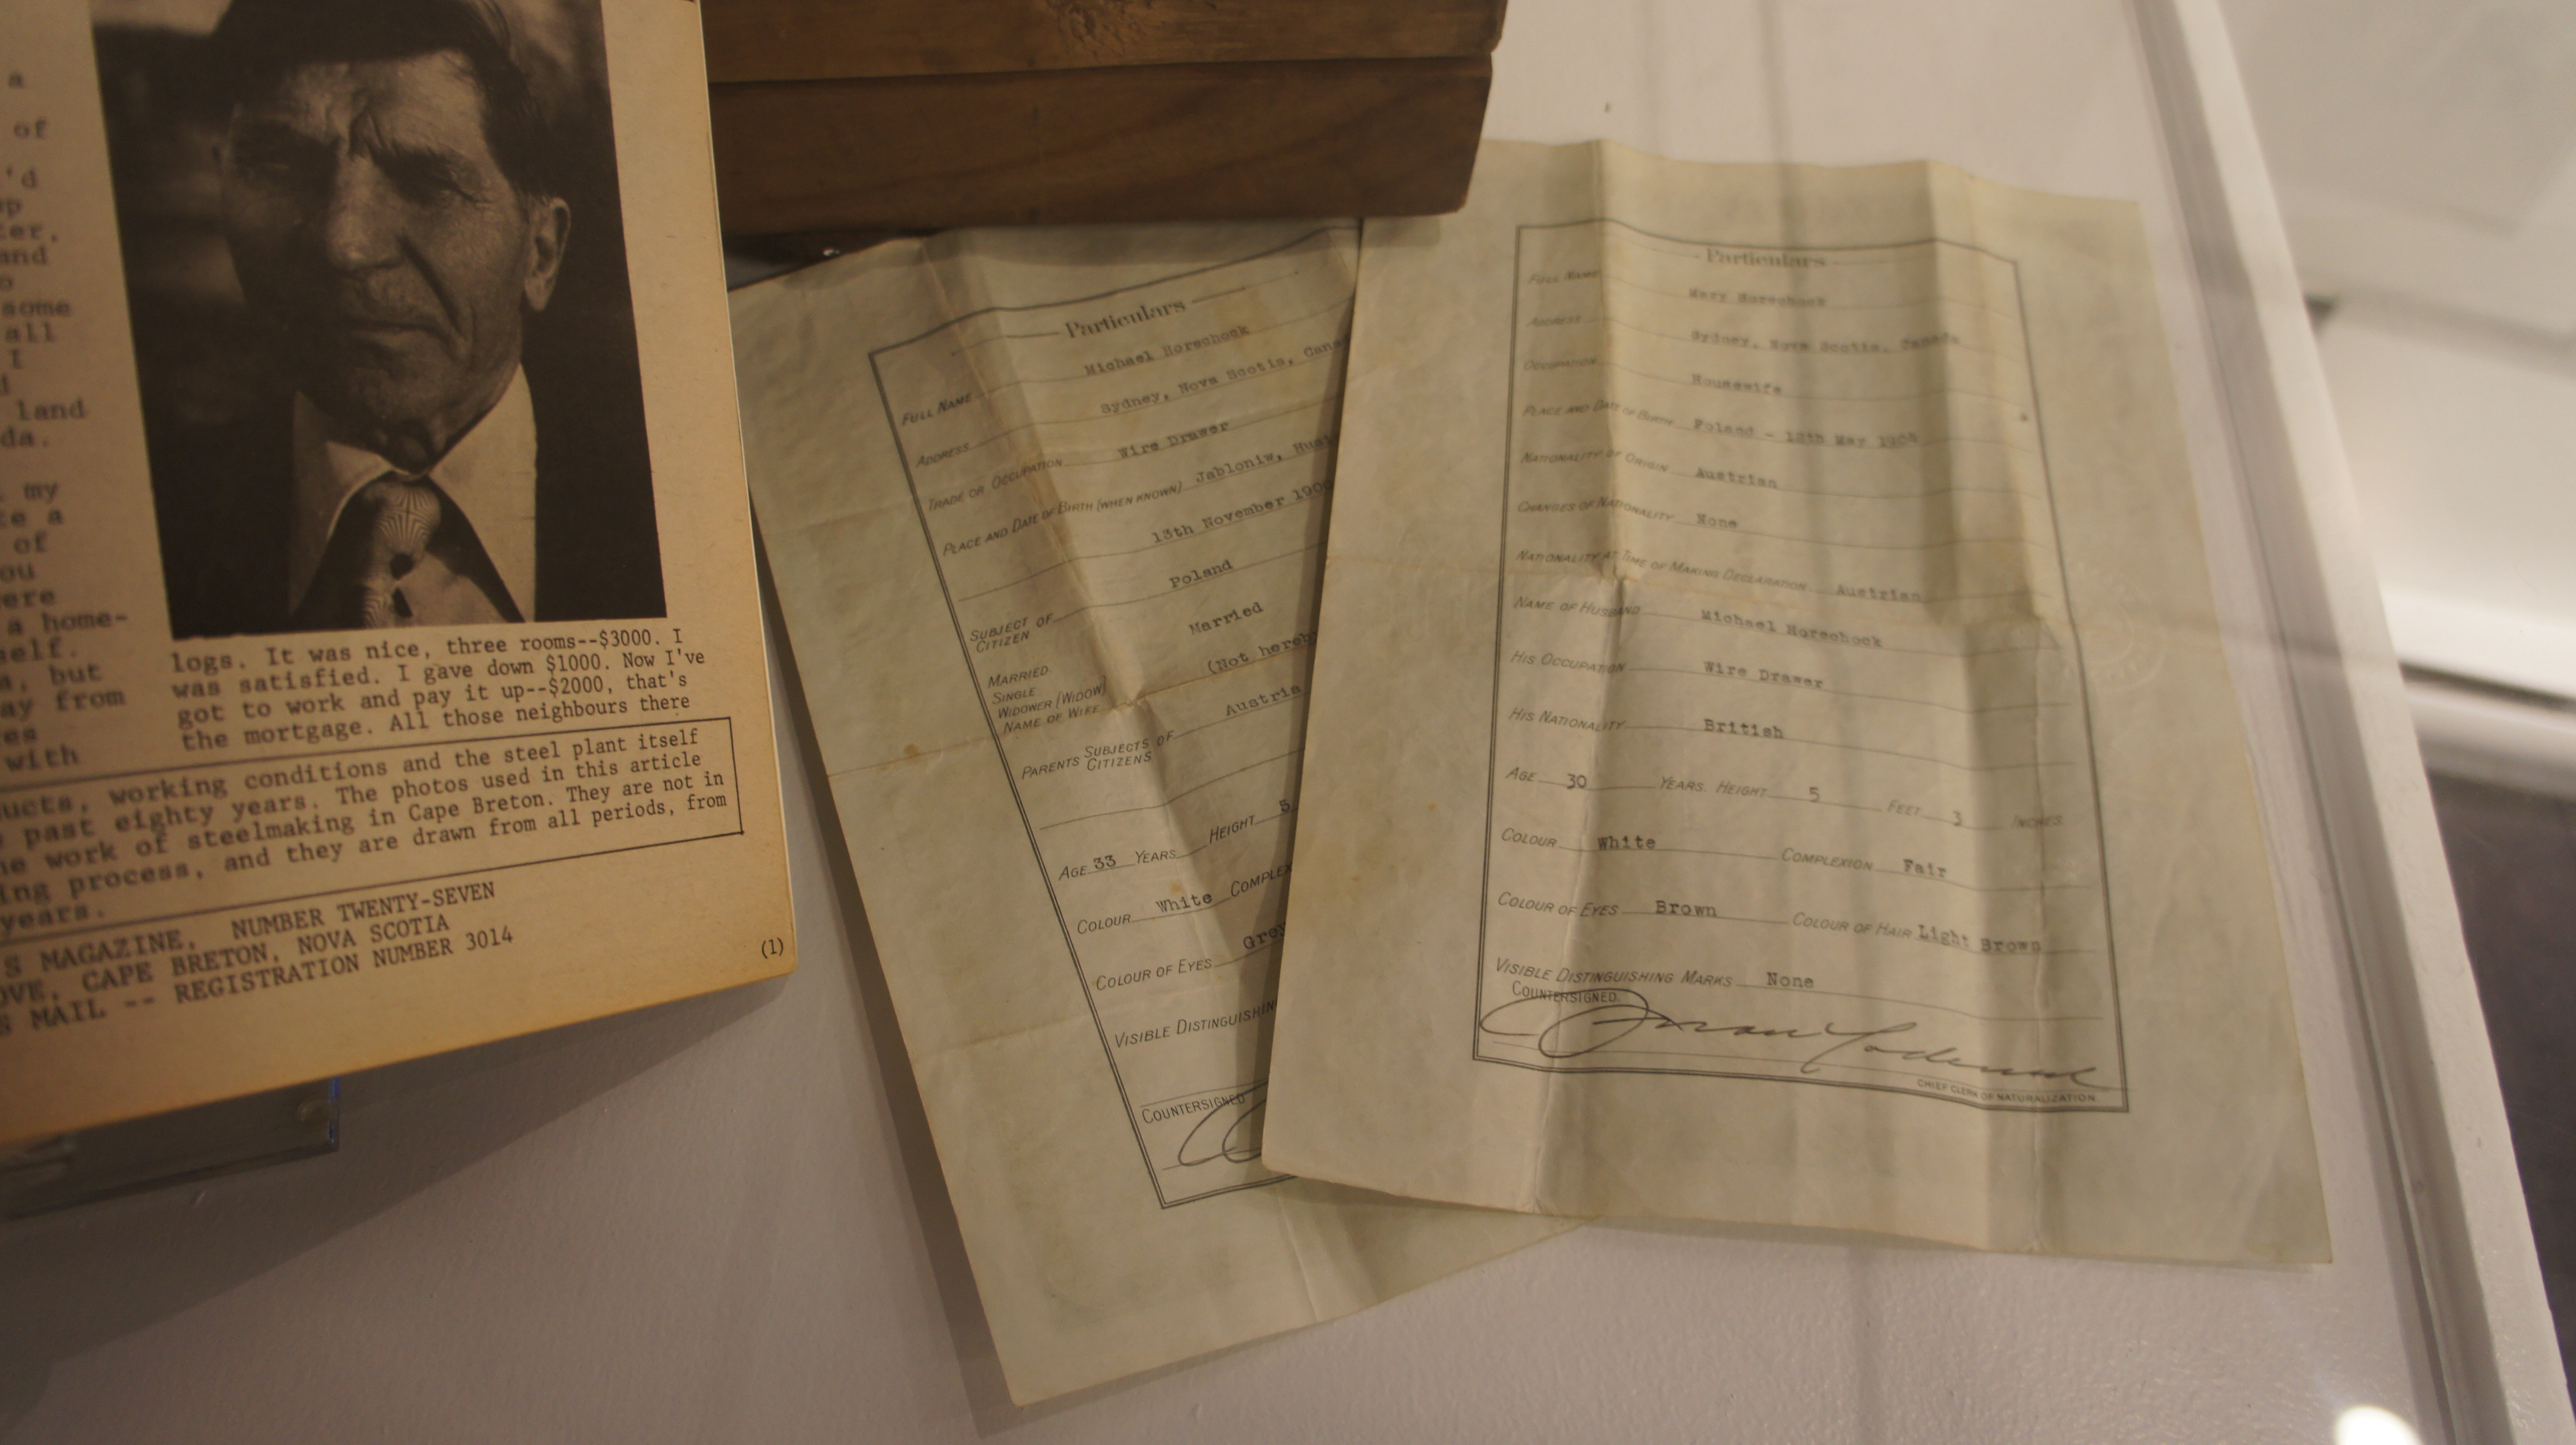 a
of
'd
up
ter,
and
o
some
all
I
d
land
da.
my
te a
of
ou
ere
a home-
self.
a, but
ay from
es
with
logs. It was nice, three rooms--$3000. I
was satisfied. I gave down $1000. Now I've
got to work and pay it up--$2000, that's
the mortgage. All those neighbours there
ucts, working conditions and the steel plant itself
past eighty years. The photos used in this article
he work of steelmaking in Cape Breton. They are not in
ing process, and they are drawn from all periods, from
years.
S MAGAZINE, NUMBER TWENTY-SEVEN
OVE, CAPE BRETON, NOVA SCOTIA
S MAIL -- REGISTRATION NUMBER 3014
(1)
Particulars
FULL NAME Michael Horschock
ADDRESS Sydney, Nova Scotia, Cana
TRADE OR OCCUPATION Wire Drawer
PLACE AND DATE OF BIRTH (WHEN KNOWN) Jabloniw, Hus
13th November 190
SUBJECT OF Poland
CITIZEN
MARRIED Married
SINGLE
WIDOWER (WIDOW)
NAME OF WIFE (Not hereb
PARENTS SUBJECTS OF Austria
CITIZENS
AGE 33 YEARS HEIGHT 5
COLOUR White COMPLEX
COLOUR OF EYES Grey
VISIBLE DISTINGUISHIN
COUNTERSIGNED
Particulars
FULL NAME Mary Horschock
ADDRESS Sydney, Nova Scotia, Canada
OCCUPATION Housewife
PLACE AND DATE OF BIRTH Poland - 12th May
NATIONALITY OF ORIGIN Austrian
CHANGES OF NATIONALITY None
NATIONALITY AT TIME OF MAKING DECLARATION Austrian
NAME OF HUSBAND Michael Horschock
HIS OCCUPATION Wire Drawer
HIS NATIONALITY British
AGE 30 YEARS. HEIGHT 5 FEET 3 INCHES
COLOUR White COMPLEXION Fair
COLOUR OF EYES Brown COLOUR OF HAIR Light Brown
VISIBLE DISTINGUISHING MARKS None
COUNTERSIGNED.
CHIEF CLERK OF NATURALIZATION